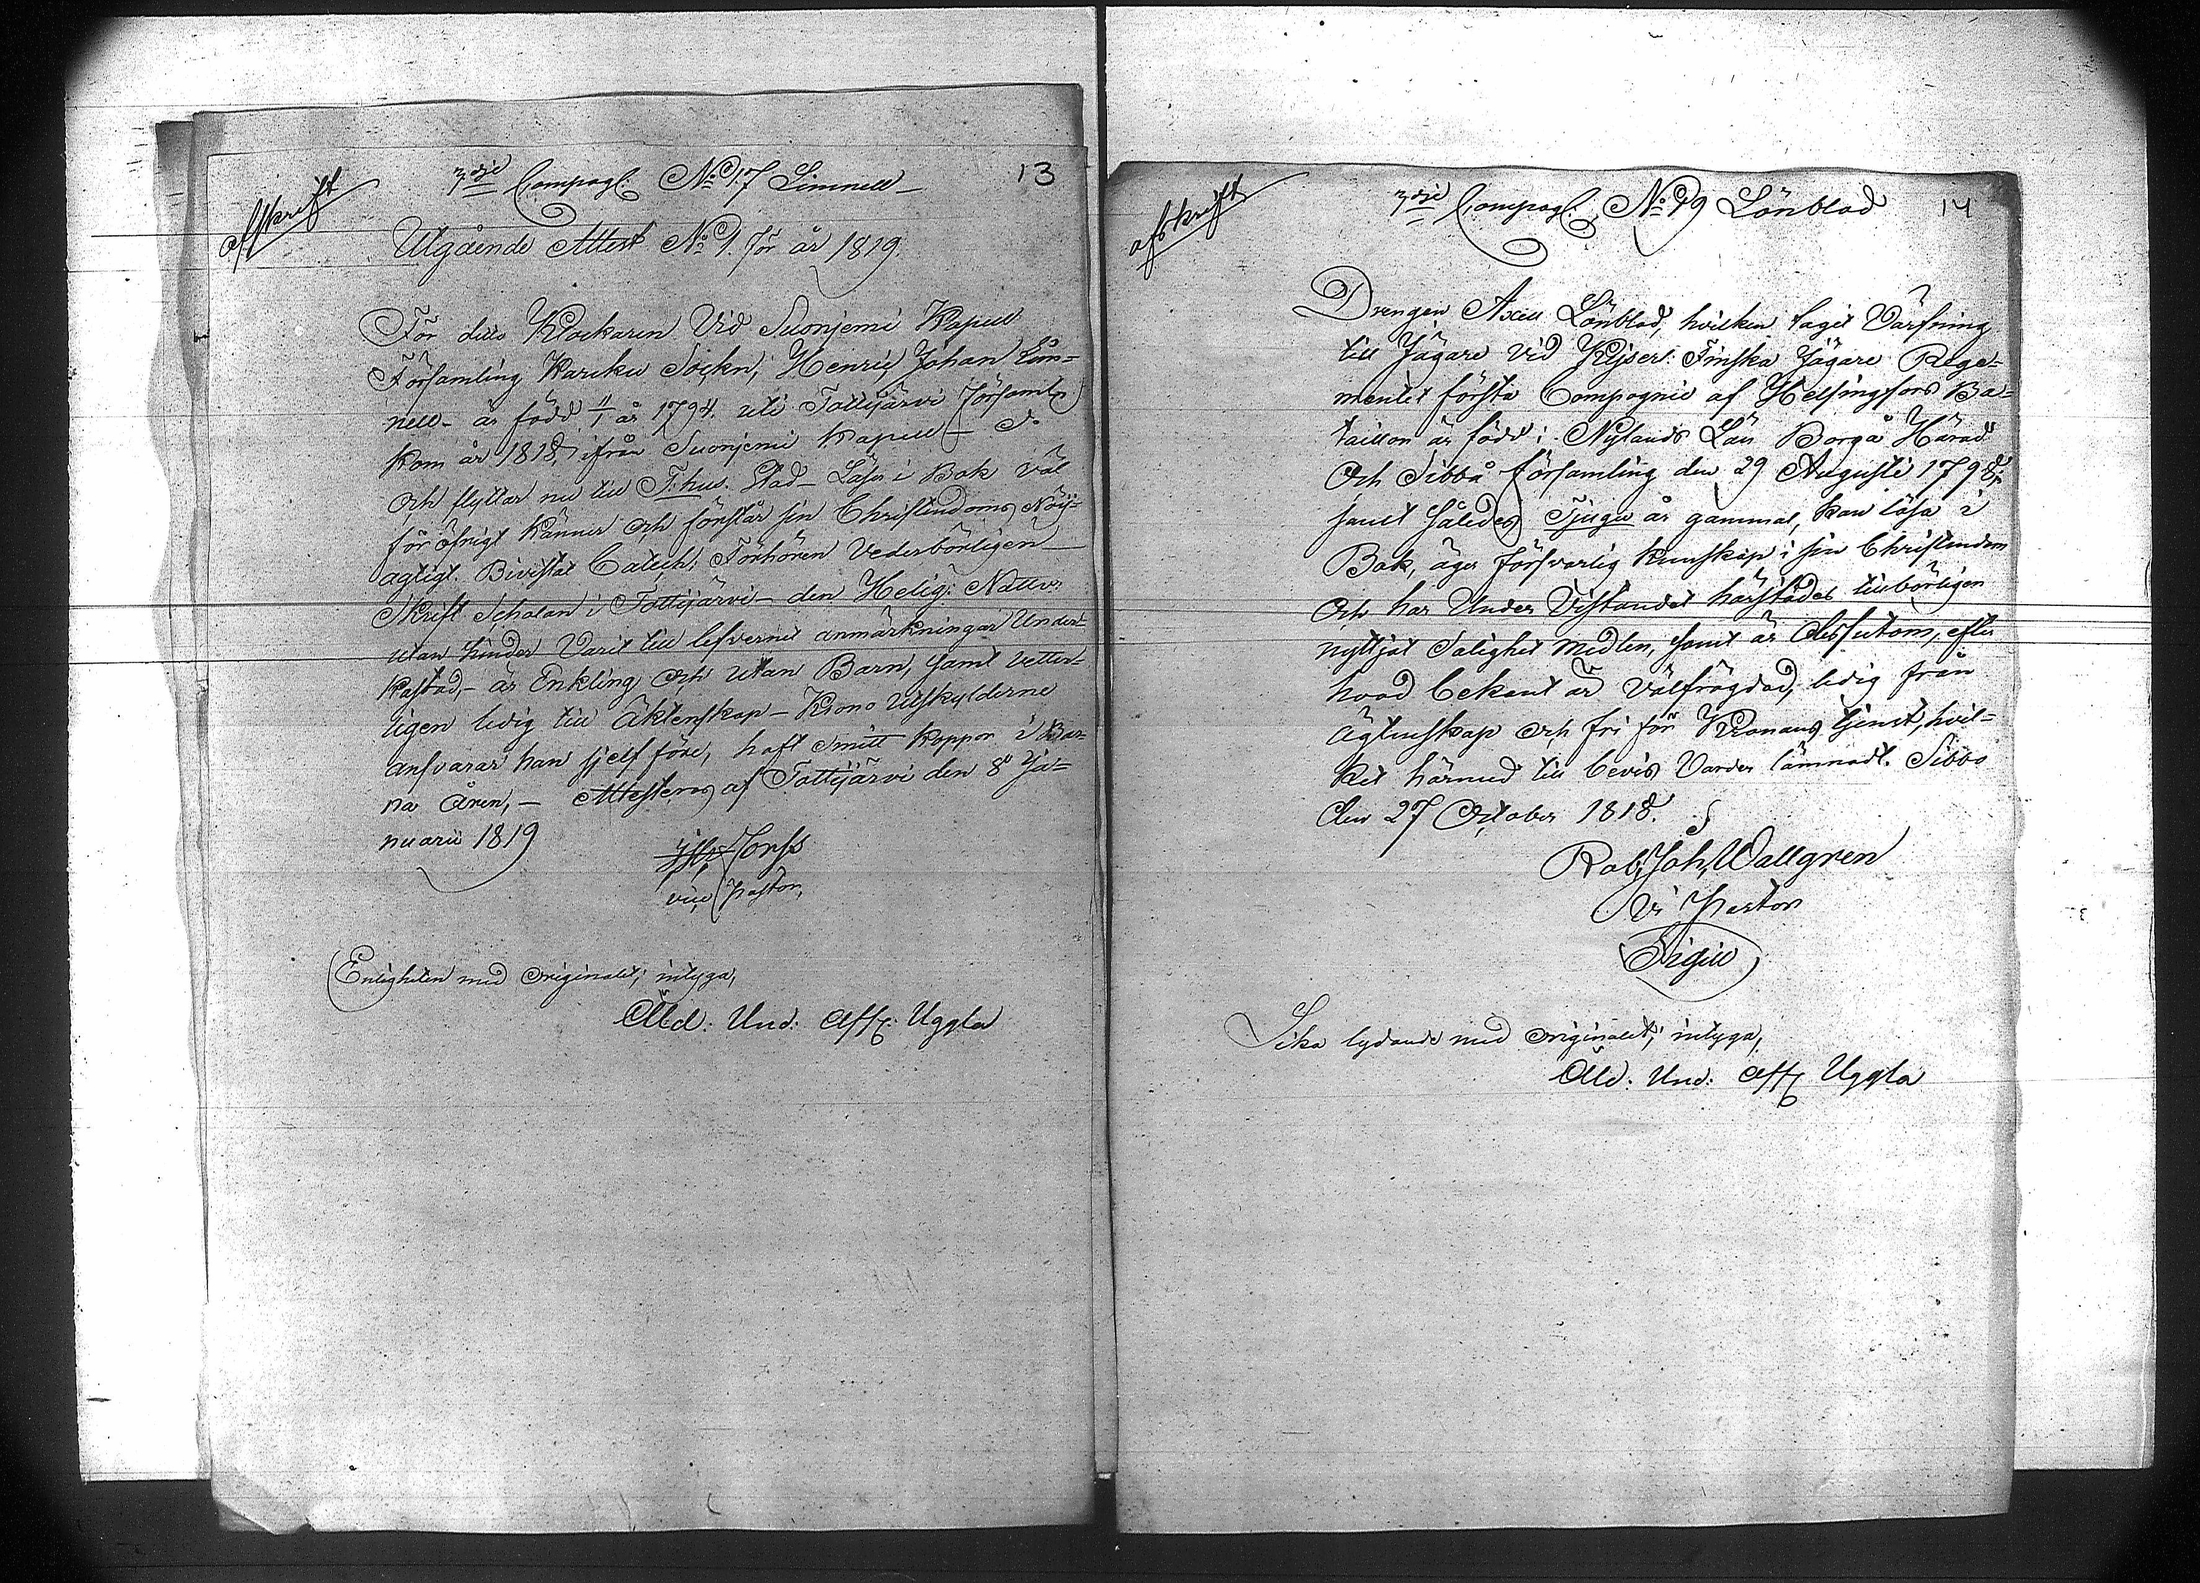 afskrift
3dje Compagt. No 17 Limnell
13
Utgående Attest No 1. för år 1819.
För dito Klockaren Vid Suonjemi Kapell
Församling Karcku Sockn, Henric Johan Lim=
nell – är född 11/1 år 1794. uti Tottijärvi församl.
Kom år 1818, ifrån Suonjemi Kapell –
och flyttar nu till T:hus Stad – Läser i Bok väl
för öfrigt känner och förstår sin Christendoms Nöij=
agtigt. Bivistat Catech: Förhören Vederbörligen –
Skrift Scholan i Tottijärvi – den Helig: Nattv:
utan hinder Varit till lefvernet anmärkningar Under=
kastad, – är Enkling och utan Barn, samt vetter=
ligen ledig till Äktenskap – Krono Utskylderne
ansvarar han sjelf före, haft Smitt koppor i Bar=
na Åren, – Attesteras af Tottijärvi den 8de Ja=
nuarii 1819
Forss
vice Pastor,
Enligheten med originalet, intyga,
Åld: Und: Aff: Uggla
afskrift
3dje Compagt. No 19 Lönblad
14
Drengen Axell Lönblad, hvilken tagit Värfning
till Jägare vid Kejserl: Finska Jägare Rege=
mentet första Compagnie af Helsingfors Ba=
taillon är född i Nylands Län Borgå Härad
Och Sibbå församling den 29 Augusti 1798,
samt således Tjugu år gammal, kan läsa i
Bok, äger försvarlig kunskap i sin Christendom
Och har Under Vistandet härstädes tillbörligen
nyttjat Salighet Medlen, samt är dessutom, efter
hvad bekant är Välfrägdad, ledig från
Ägtenskap och fri för Kronans tjenst, hvil=
ket härmed till bevis Varder lämnadt. Sibbo
den 27 October 1818.
Rob, Joh, Wallgren
Vi Pastor
Sigill
Lika lydande med originalet, intyga,
Åld: Und: Aff: Uggla